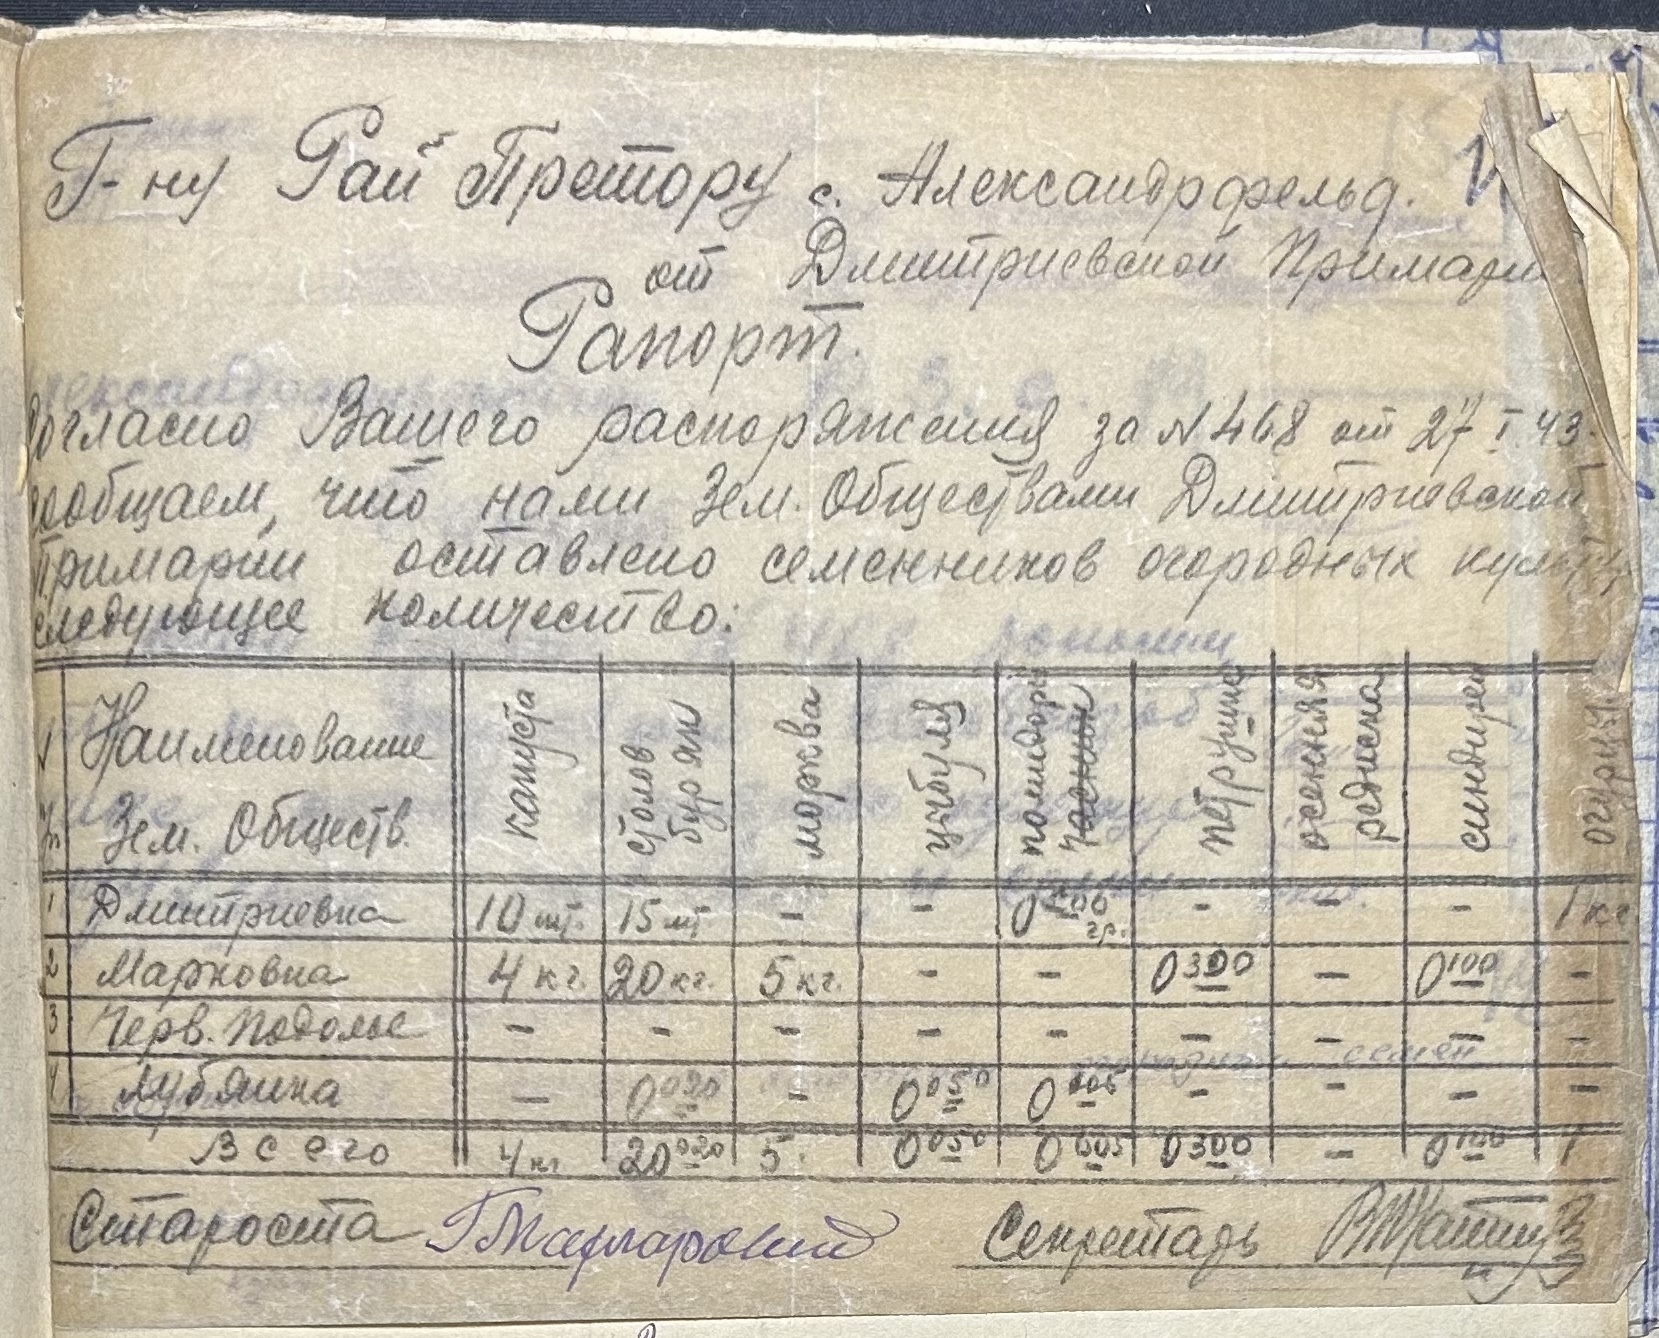 Г-ну Рай Претору с. Александрфельд.
от Дмитриевской Примари
Рапорт.
Согласно Вашего распоряжения за N 468 от 27 I. 43.
сообщаем, что нами Зем. Обществами Дмитриевской
Примарии оставлено семенников огородных культ
следующее количество:
Наименование Зем. Обществ. капуста столов буряк морква цыбуля помидоры часник петрушка осенняя редиска синнирей огурцы
1 Дмитриевка 10 шт. 15 шт - - гр. - - - 1 кг
2 Марковка 4 кг. 20 кг. 5 кг. - - 0300 - 0100 -
3 Черв. Подолье - - - - - - - - -
4 Лубянка - 0020 - 0050 0005 - - - -
Всего 4 кг 20020 5. 0050 0605 0300 - 0100 1
Староста
Секретарь